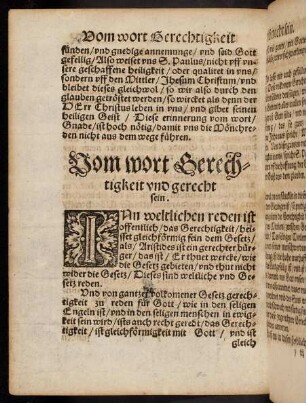 Vom wort Gerechtigkeit
sünden/vnd gnedige annemunge/ vnd seid Gott
gefellig/Also weiset vns S. Paulus/nicht vff vn-
sere geschaffene heiligkeit / oder qualitet in vns/
sondern vff den Mittler/ Jhesum Christum/vnd
bleibet dieses gleichwol / so wir also durch den
glauben getröstet werden/so wircket als denn der
HErr Christus leben in vns / vnd gibet seinen
heiligen Geist / Diese erinnerung vom wort/
Gnade/ist hoch nötig/damit vns die Mönchre-
den nicht aus dem wege führen.
Vom wort Gerech-
tigkeit vnd gerecht
sein.
IN weltlichen reden ist
offentlich/das Gerechtigkeit/heis-
set gleichförmig sein dem Gesetz/
als/ Aristides ist ein gerechter bür-
ger/das ist/ Er thuet wercke/wie
die Gesetz gebieten/vnd thut nicht
wider die Gesetz/ Dieses sind weltliche vnd Ge-
setz reden.
Vnd von gantzer volkomener Gesetz gerech-
tigkeit zu reden für Gott / wie in den seligen
Engeln ist/vnd in den seligen menschen in ewig-
keit sein wird/ists auch recht geredt/das Gerech-
tigkeit / ist gleichförmigkeit mit Gott / vnd ist
gleich